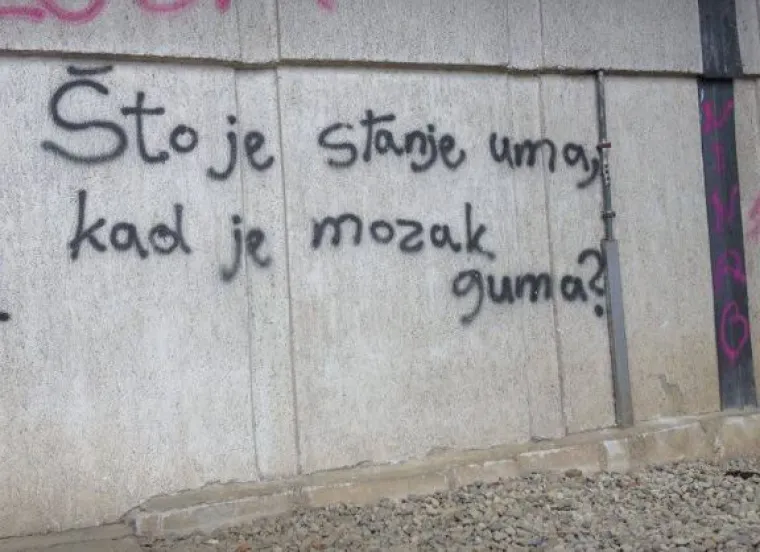 Što je stanje uma,
kad je mozak
guma?